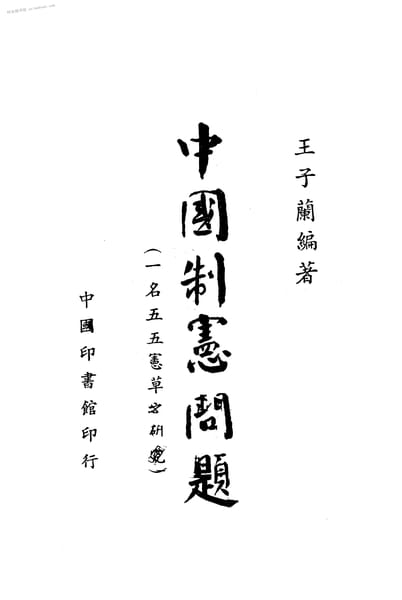 王子蘭編著
中國制憲問題
(一名五五憲草之研究)
中國印書館印行